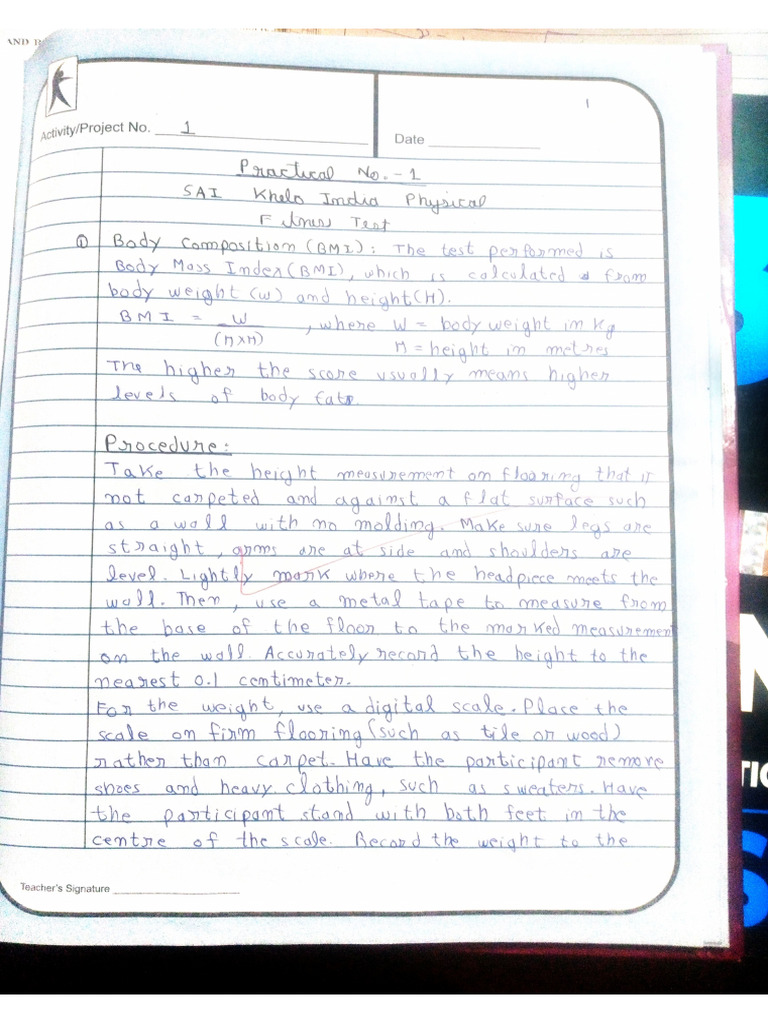 AND
1
Activity/Project No. 1
Date
Practical No. - 1
SAI Khelo India Physical
Fitness Test
① Body Composition (BMI): The test performed is
Body Mass Index (BMI), which is calculated from
body weight (W) and height (H).
BMI = W / (H×H), where W = body weight in Kg
H = height in metres
The higher the score usually means higher
levels of body fat.
Procedure:
Take the height measurement on flooring that is
not carpeted and against a flat surface such
as a wall with no molding. Make sure legs are
straight, arms are at side and shoulders are
level. Lightly mark where the headpiece meets the
wall. Then, use a metal tape to measure from
the base of the floor to the marked measurement
on the wall. Accurately record the height to the
nearest 0.1 centimeter.
For the weight, use a digital scale. Place the
scale on firm flooring (such as tile or wood)
rather than carpet. Have the participant remove
shoes and heavy clothing, such as sweaters. Have
the participant stand with both feet in the
centre of the scale. Record the weight to the
Teacher's Signature